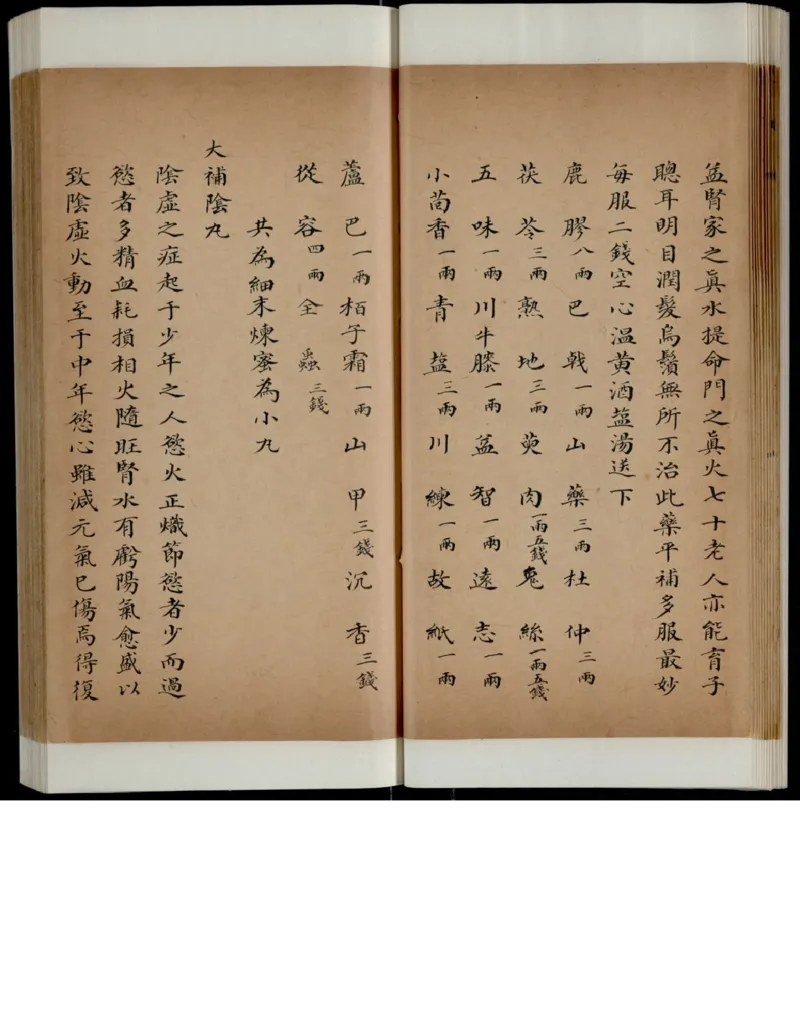 益腎家之眞水提命門之眞火七十老人亦能育子
聰耳明目潤髮烏鬚無所不治此藥平補多服最妙
每服二錢空心溫黃酒盐湯送下
鹿膠八兩巴戟一兩山藥三兩杜仲三兩
茯苓三兩熟地三兩萸肉一兩五錢兔絲一兩五錢
五味一兩川牛膝一兩益智一兩遠志一兩
小茴香一兩青盐三兩川練一兩故紙一兩
蘆巴一兩栢子霜一兩山甲三錢沉香三錢
從容四兩全蝨三錢
共為細末煉蜜為小丸
大補陰丸
陰虛之症起于少年之人慾火正熾節慾者少而過
慾者多精血耗損相火隨旺腎水有虧陽氣愈盛以
致陰虛火動至于中年慾心雖減元氣已傷焉得復